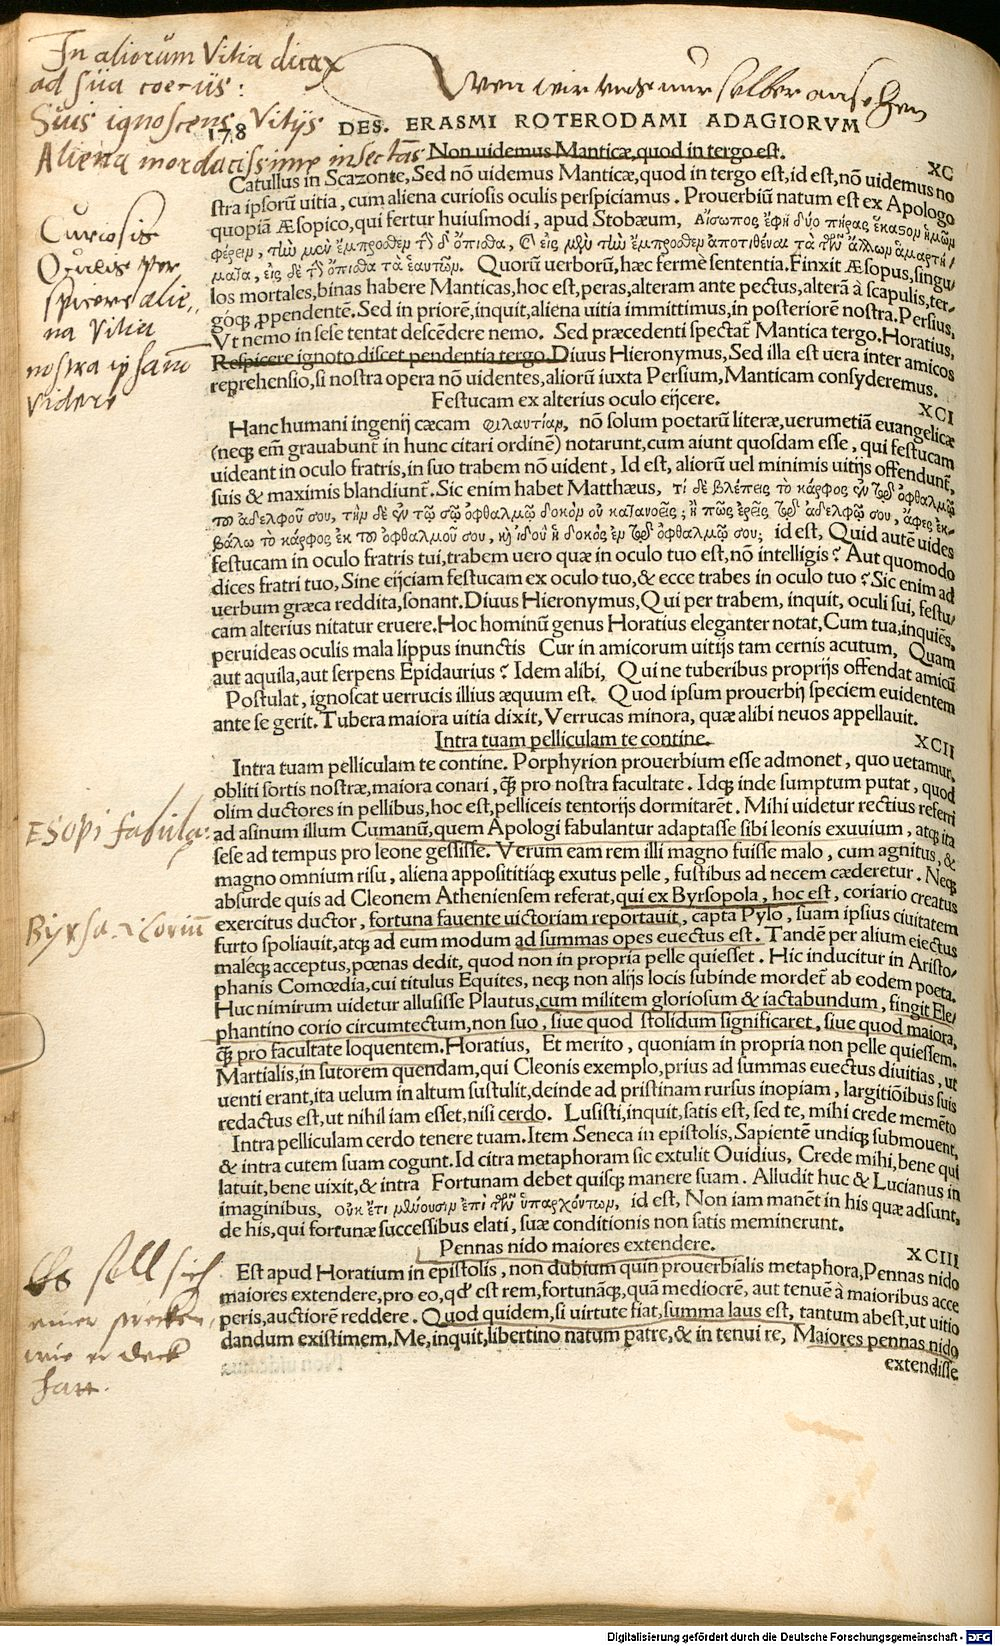 In aliorum Vitia dicax
ad sua coecus:
Suis ignoscens Vitijs
Aliena mordacissime insectans
Wen wir uns nur selber ansehen
178 DES. ERASMI ROTERODAMI ADAGIORVM
Non uidemus Manticæ, quod in tergo est. XC
Catullus in Scazonte, Sed nō uidemus Manticæ, quod in tergo est, id est, nō uidemus no
stra ipsorū uitia, cum aliena curiosis oculis perspiciamus. Prouerbiū natum est ex Apologo
quopiā Æsopico, qui fertur huiusmodi, apud Stobæum, Αἴσωπος ἔφη δύο πήρας ἕκαστον ἡμῶν
φέρειν, τὴν μὲν ἔμπροσθεν τὴν δ' ὄπισθεν, καὶ εἰς μὲν τὴν ἔμπροσθεν ἀποτιθέναι τὰ τῶν ἄλλων ἁμαρτή/
ματα, εἰς δὲ τὴν ὄπισθεν τὰ ἑαυτῶν. Quorū uerborū, hæc fermè sententia. Finxit Æsopus, singu/
los mortales, binas habere Manticas, hoc est, peras, alteram ante pectus, alterā à scapulis, ter-
góq; ꝓpendentē. Sed in priorē, inquit, aliena uitia immittimus, in posteriorē nostra. Persius,
Vt nemo in sese tentat descēdere nemo. Sed præcedenti spectat̄ Mantica tergo. Horatius,
Respicere ignoto discet pendentia tergo. Diuus Hieronymus, Sed illa est uera inter amicos
reprehensio, si nostra opera nō uidentes, aliorū iuxta Persium, Manticam consyderemus.
Curiosis
Oculis per
spicere alie,,
na Vitia
nostra ipsam
videre
Festucam ex alterius oculo eijcere. XCI
Hanc humani ingenij cæcam φιλαυτίαν, nō solum poetarū literæ, uerumetiā euangelicæ
(neq; em̄ grauabunt̄ in hunc citari ordinē) notarunt, cum aiunt quosdam esse, qui festucam
uideant in oculo fratris, in suo trabem nō uident, Id est, aliorū uel minimis uitijs offendunt̄,
suis & maximis blandiunt̄. Sic enim habet Matthæus, τί δὲ βλέπεις τὸ κάρφος ἐν τῷ ὀφθαλμῷ
τοῦ ἀδελφοῦ σου, τὴν δὲ ἐν τῷ σῷ ὀφθαλμῷ δοκὸν οὐ κατανοεῖς; ἢ πῶς ἐρεῖς τῷ ἀδελφῷ σου, ἄφες ἐκ-
βάλω τὸ κάρφος ἐκ τοῦ ὀφθαλμοῦ σου, καὶ ἰδοὺ ἡ δοκὸς ἐν τῷ ὀφθαλμῷ σου; id est, Quid autē uides
festucam in oculo fratris tui, trabem uero quæ in oculo tuo est, nō intelligis? Aut quomodo
dices fratri tuo, Sine eijciam festucam ex oculo tuo, & ecce trabes in oculo tuo? Sic enim ad
uerbum græca reddita, sonant. Diuus Hieronymus, Qui per trabem, inquit, oculi sui, festu/
cam alterius nitatur eruere. Hoc hominū genus Horatius eleganter notat, Cum tua, inquiēs,
peruideas oculis mala lippus inunctis Cur in amicorum uitijs tam cernis acutum, Quam
aut aquila, aut serpens Epidaurius? Idem alibi, Qui ne tuberibus proprijs offendat amicū
Postulat, ignoscat uerrucis illius æquum est. Quod ipsum prouerbij speciem euidentem
ante se gerit. Tubera maiora uitia dixit, Verrucas minora, quæ alibi neuos appellauit.
Intra tuam pelliculam te contine. XCII
Intra tuam pelliculam te contine. Porphyrion prouerbium esse admonet, quo uetamur,
obliti sortis nostræ, maiora conari, q̄ꝫ pro nostra facultate. Idq; inde sumptum putat, quod
olim ductores in pellibus, hoc est, pelliceis tentorijs dormitarēt. Mihi uidetur rectius referri
ad asinum illum Cumanū, quem Apologi fabulantur adaptasse sibi leonis exuuium, atq; ita
sese ad tempus pro leone gessisse. Verum eam rem illi magno fuisse malo, cum agnitus, &
magno omnium risu, aliena apposititiáq; exutus pelle, fustibus ad necem cæderetur. Neq;
absurde quis ad Cleonem Atheniensem referat, qui ex Byrsopola, hoc est, coriario creatus
exercitus ductor, fortuna fauente uictoriam reportauit, capta Pylo, suam ipsius ciuitatem
furto spoliauit, atq; ad eum modum ad summas opes euectus est. Tandē per alium eiectus
maleq; acceptus, pœnas dedit, quod non in propria pelle quiesset. Hic inducitur in Aristo/
phanis Comœdia, cui titulus Equites, neq; non alijs locis subinde mordet̄ ab eodem poeta.
Huc nimirum uidetur allusisse Plautus, cum militem gloriosum & iactabundum, fingit Ele/
phantino corio circumtectum, non suo, siue quod stolidum significaret, siue quod maiora,
q̄ꝫ pro facultate loquentem. Horatius, Et merito, quoniam in propria non pelle quiessem.
Martialis, in sutorem quendam, qui Cleonis exemplo, prius ad summas euectus diuitias, ut
uenti erant, ita uelum in altum sustulit, deinde ad pristinam rursus inopiam, largitiōibus suis
redactus est, ut nihil iam esset, nisi cerdo. Lusisti, inquit, satis est, sed te, mihi crede memēto
Intra pelliculam cerdo tenere tuam. Item Seneca in epistolis, Sapientē undiq; submouent,
& intra cutem suam cogunt. Id citra metaphoram sic extulit Ouidius, Crede mihi, bene qui
latuit, bene uixit, & intra Fortunam debet quisq; manere suam. Alludit huc & Lucianus in
imaginibus, οὐκ ἔτι μένουσιν ἐπὶ τῶν ὑπαρχόντων, id est, Non iam manēt in his quæ adsunt,
de his, qui fortunæ successibus elati, suæ conditionis non satis meminerunt.
ESOPI fabula:
Byrsa .i. Corium
Pennas nido maiores extendere. XCIII
Est apud Horatium in epistolis, non dubium quin prouerbialis metaphora, Pennas nido
maiores extendere, pro eo, qd' est rem, fortunāq;, quā mediocrē, aut tenuē à maioribus acce
peris, auctiorē reddere. Quod quidem, si uirtute fiat, summa laus est, tantum abest, ut uitio
dandum existimem. Me, inquit, libertino natum patre, & in tenui re, Maiores pennas nido
extendisse
Es soll sich
einer strecken,
wie er deck
hatt.
Digitalisierung gefördert durch die Deutsche Forschungsgemeinschaft - DFG